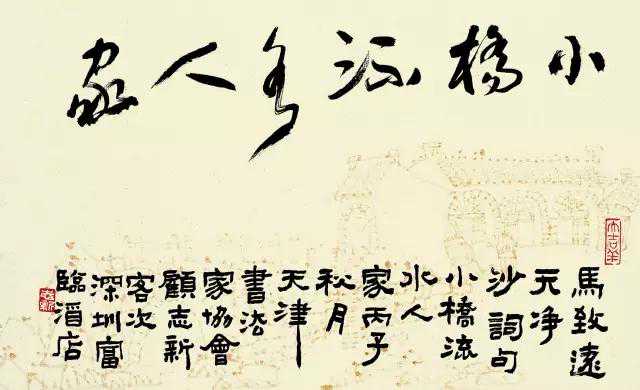 小橋流水人家
馬致遠
天净
沙詞句
小橋流
水人
家丙子
秋月
天津
書法
家協會
顧志新
客次
深圳富
臨酒店
大吉羊